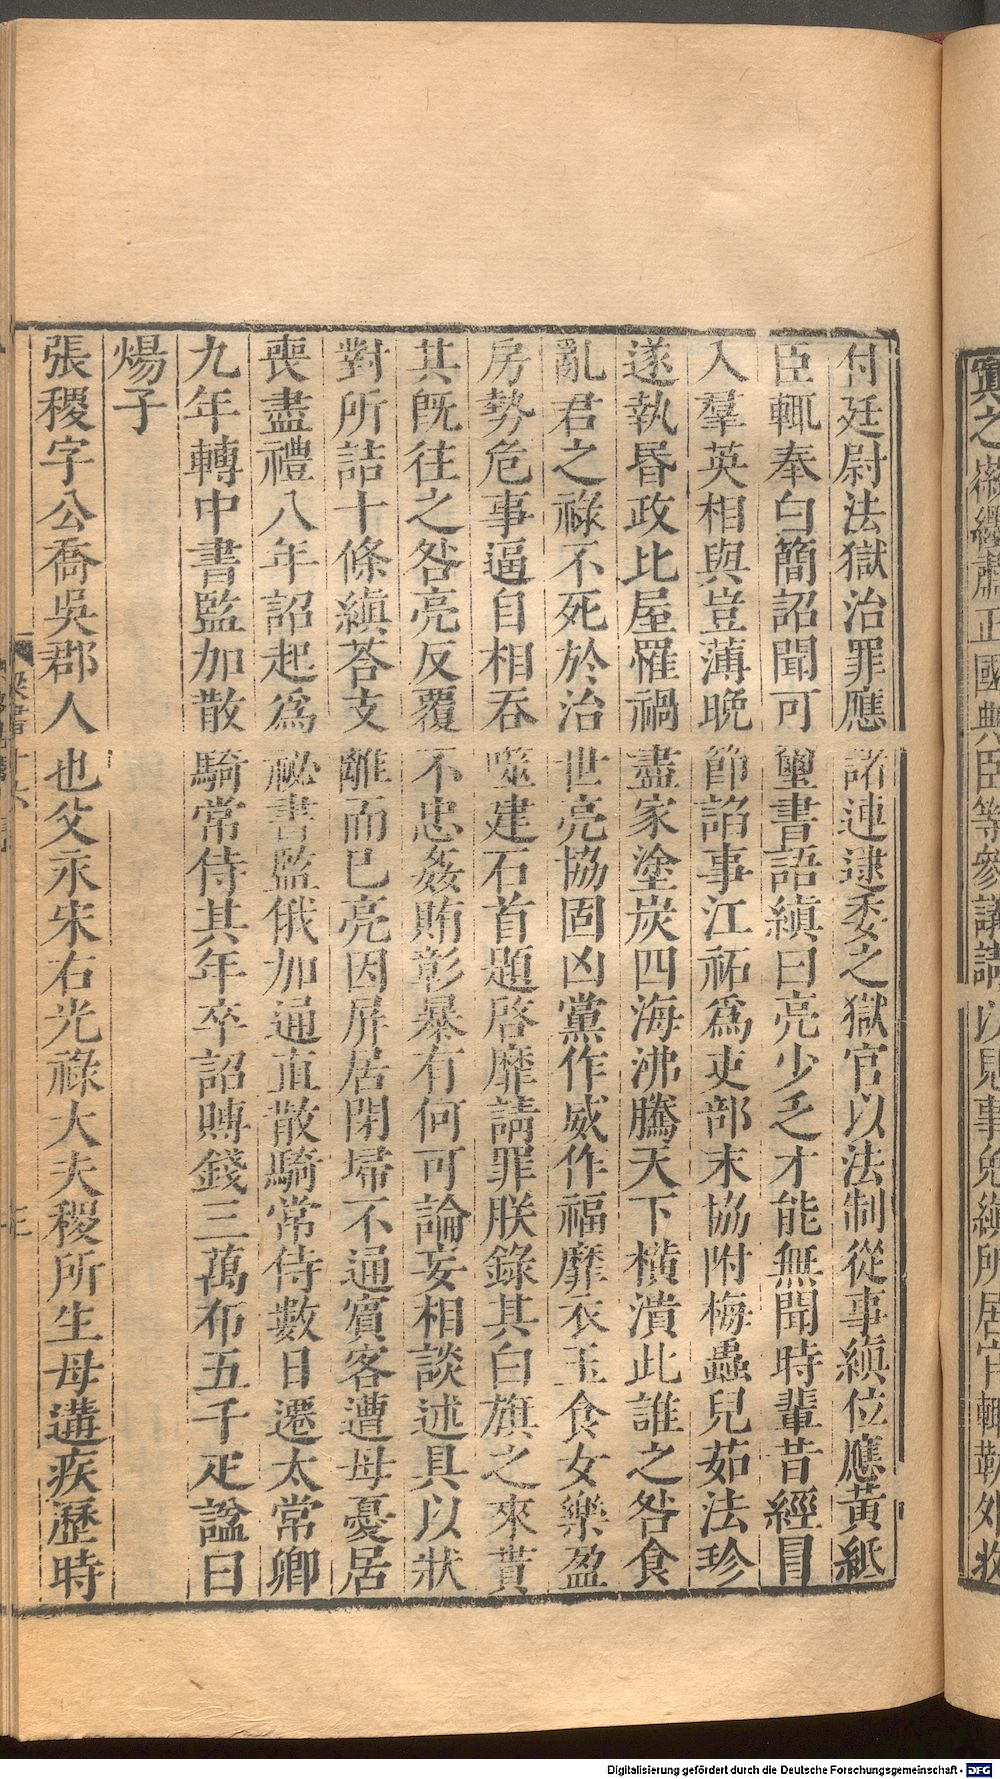 寘之徽纆肅正國典臣等參議請以見事免縝所居官輒勒外收
付廷尉法獄治罪應諸連逮委之獄官以法制從事縝位應黃紙
臣輒奉白簡詔聞可璽書語縝曰亮少乏才能無聞時輩昔經冒
入羣英相與豈薄晚節諂事江祏爲吏部末協附梅蟲兒茹法珍
遂執昬政比屋罹禍盡家塗炭四海沸騰天下橫潰此誰之咎食
亂君之祿不死於治世亮協固凶黨作威作福靡衣玉食女樂盈
房勢危事逼自相吞噬建石首題啓靡請罪朕錄其白旗之來貰
其旣往之咎亮反覆不忠姦賄彰暴有何可論妄相談述具以狀
對所詰十條縝荅支離而已亮因屏居閉埽不通賓客遭母憂居
喪盡禮八年詔起爲祕書監俄加通直散騎常侍數日遷太常卿
九年轉中書監加散騎常侍其年卒詔賻錢三萬布五千疋諡曰
煬子
張稷字公喬吳郡人也父永宋右光祿大夫稷所生母遘疾歷時
梁書十六
三
Digitalisierung gefördert durch die Deutsche Forschungsgemeinschaft - DFG